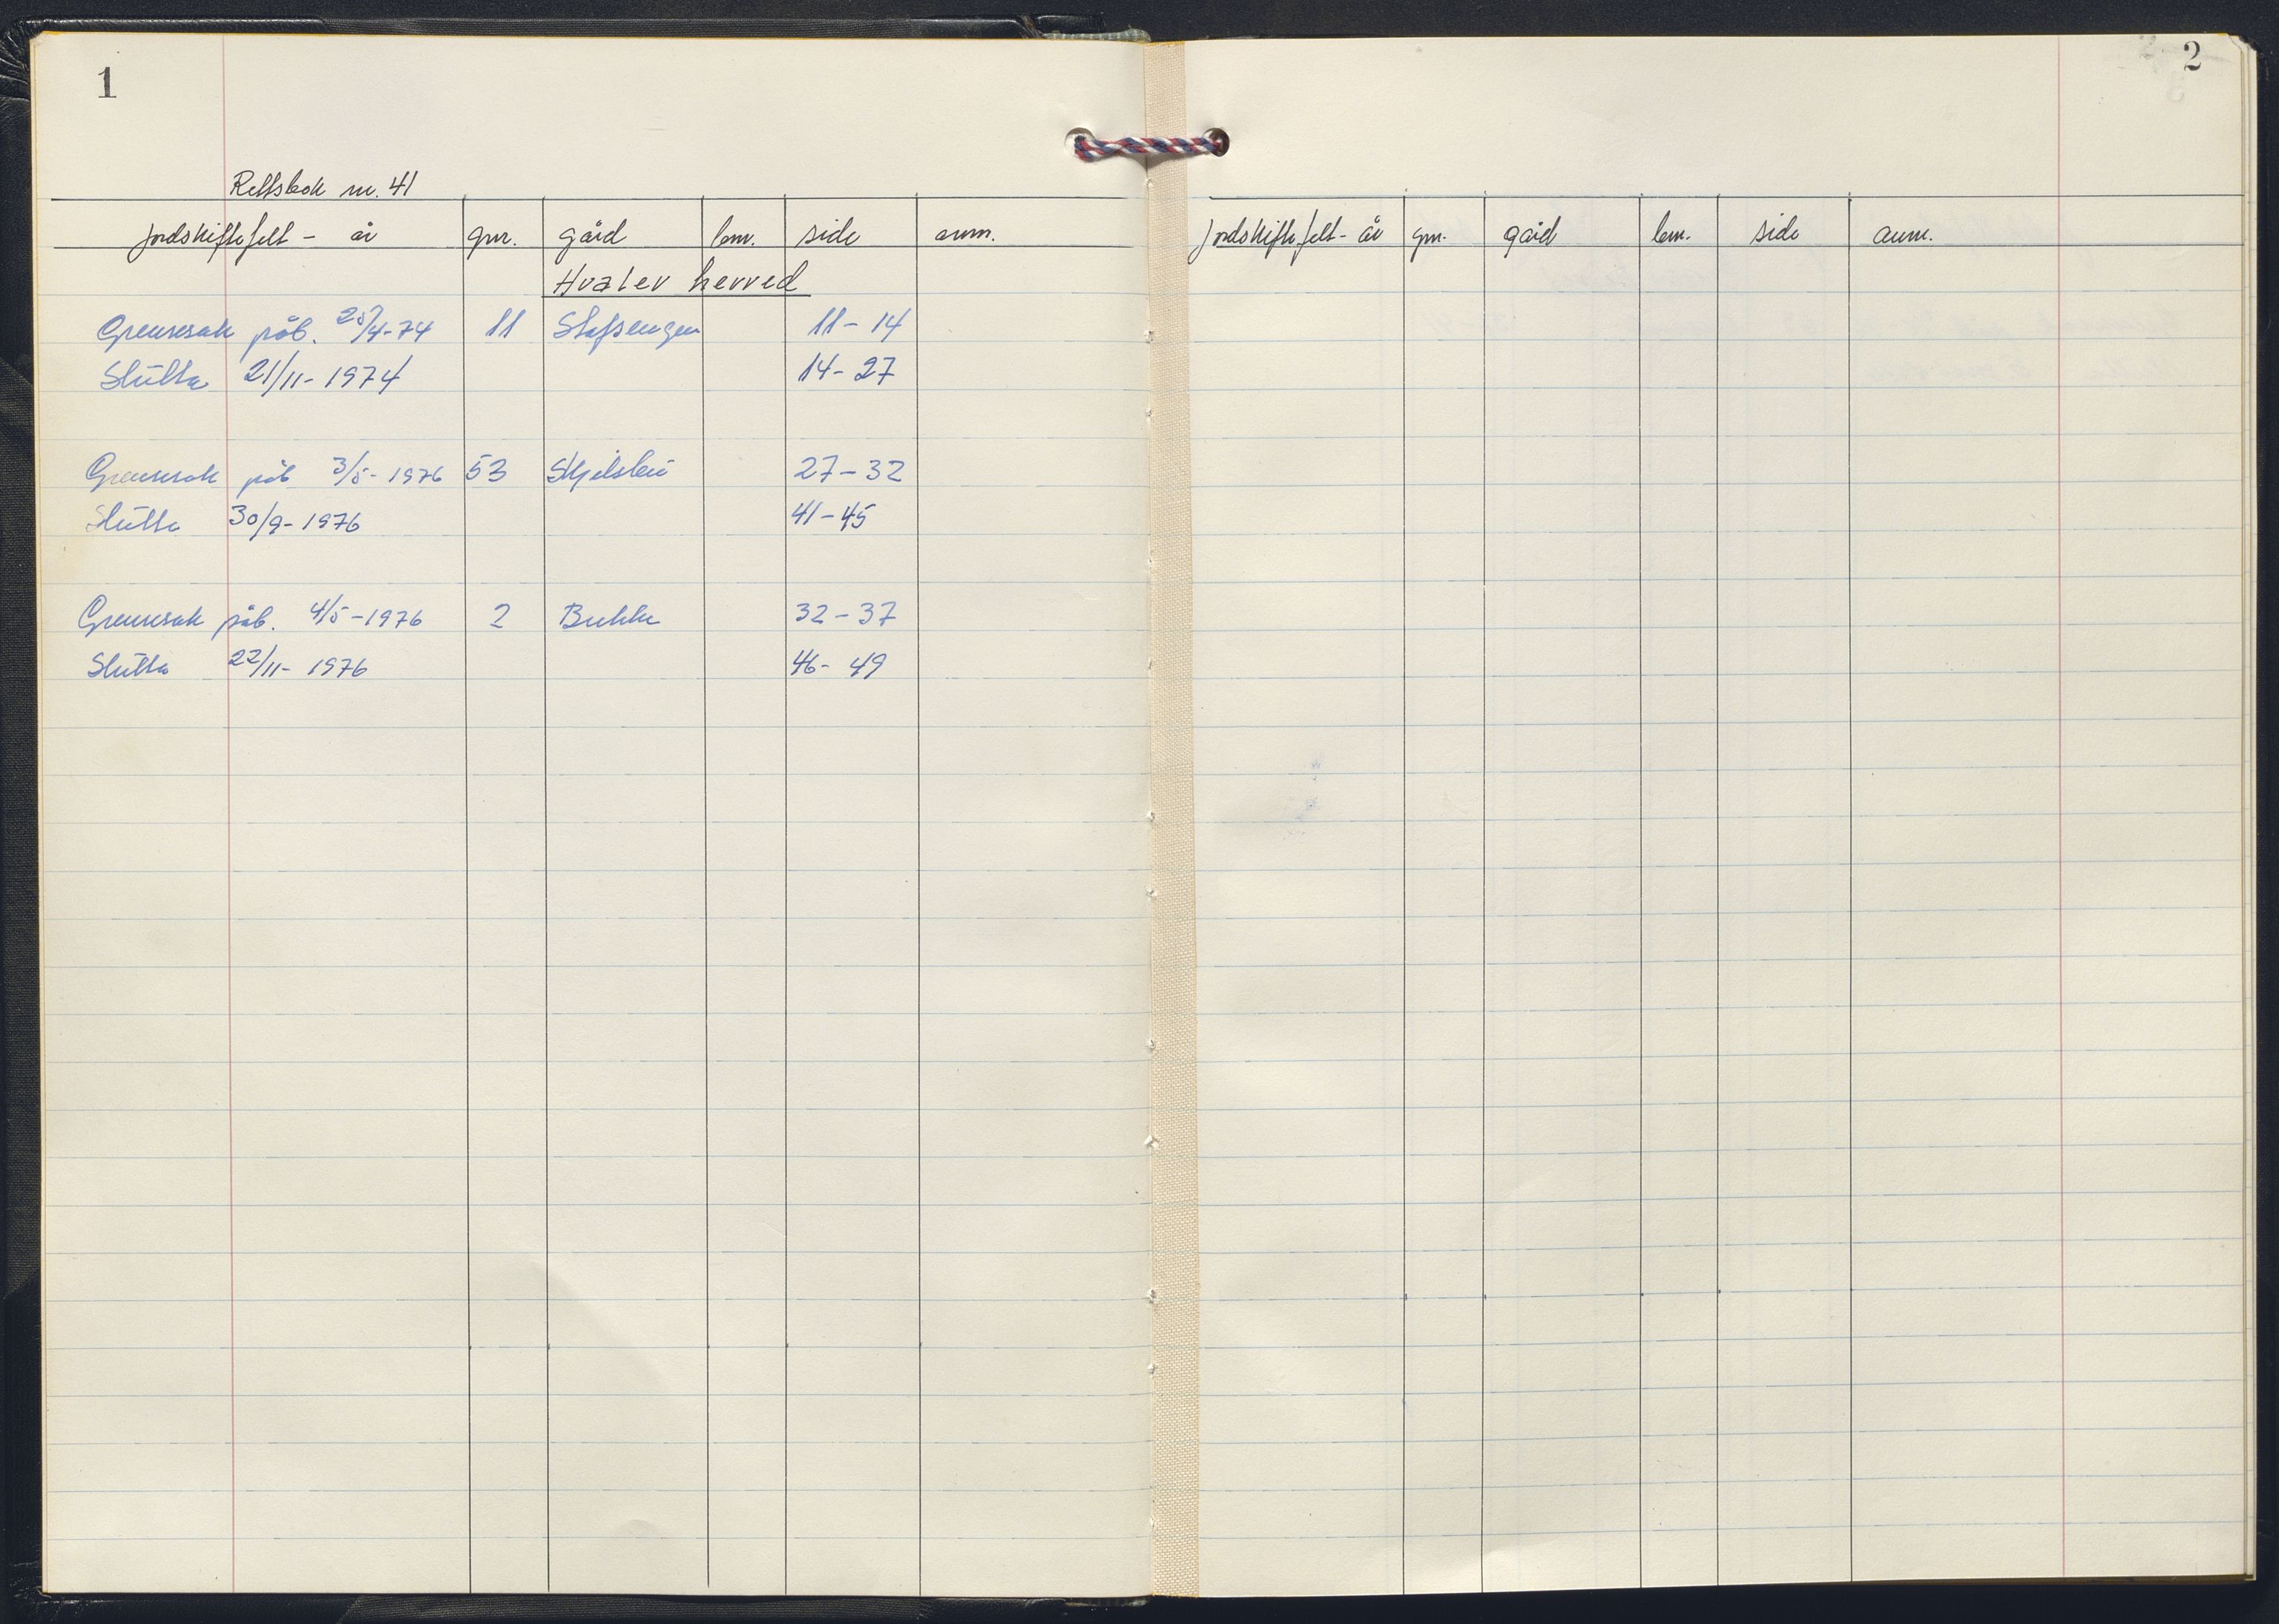 1
Rettsbok nr. 41
jordskiftefelt - år gnr. gård bnr. side anm.
Hvaler herred
Grensesak påb. 25/4-74 11 Stafsengen 11-14
Slutta 21/11-1974 14-27
Grensesak påb 3/5-1976 53 Skjelsbu 27-32
Slutta 30/9-1976 41-45
Grensesak påb. 4/5-1976 2 Bukke 32-37
Slutta 22/11-1976 46-49
2
jordskiftefelt - år gnr. gård bnr. side anm.